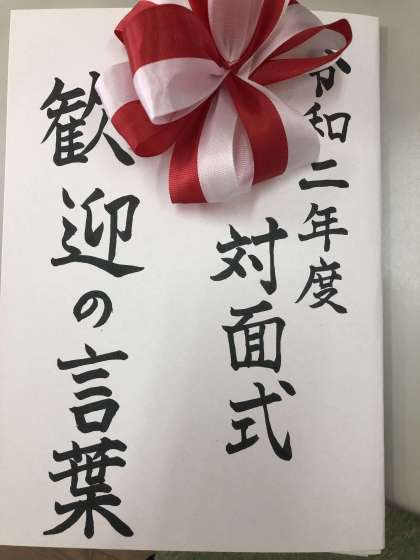 令和二年度
対面式
歓迎の言葉